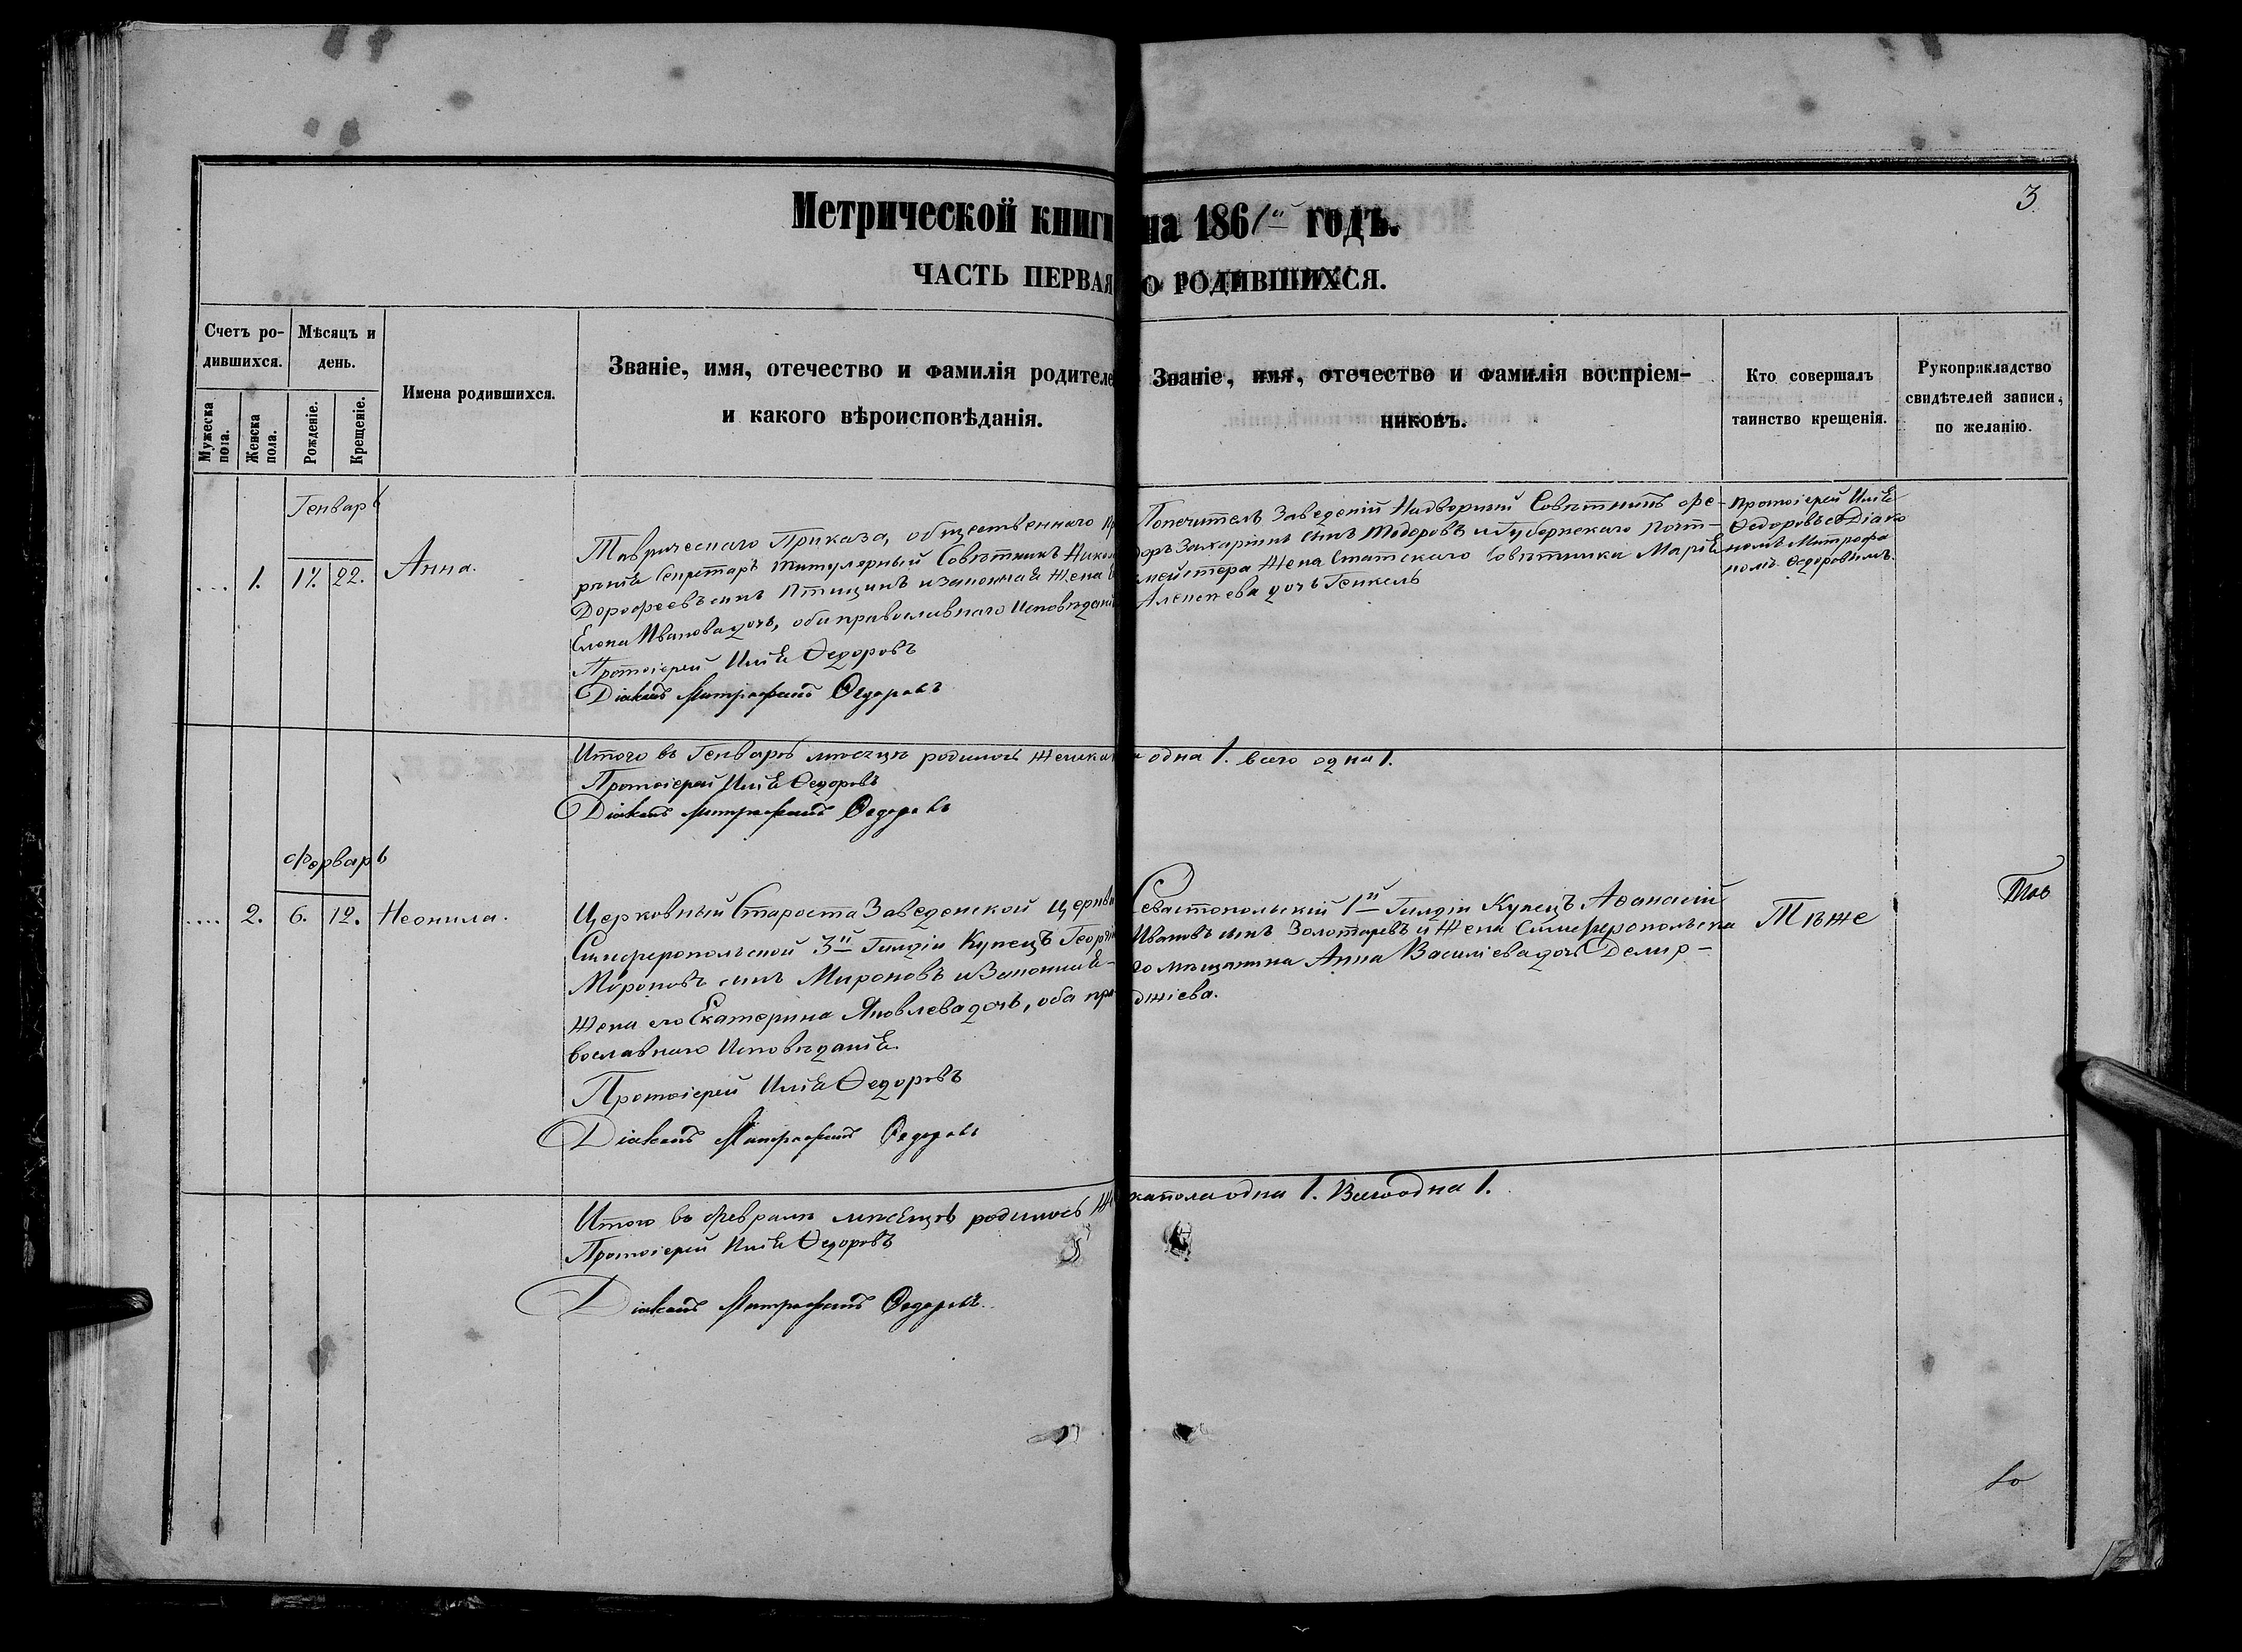 3
Метрической книги на 1861й годъ.
ЧАСТЬ ПЕРВАЯ О РОДИВШИХСЯ.
Счетъ ро-
дившихся.
Мужеска пола.
Женска пола.
Мѣсяцъ и
день.
Рожденіе.
Крещеніе.
Имена родившихся.
Званіе, имя, отечество и фамилія родителе
и какого вѣроисповѣданія.
Званіе, имя, отечество и фамилія воспріем-
никовъ.
Кто совершалъ
таинство крещенія.
Рукоприкладство
свидѣтелей записи,
по желанію.
Генварь
1. 17. 22. Анна.
Таврическаго Приказа, общественнаго
Секретарь титулярный Совѣтникъ
Дорофеевъ сынъ Птицинъ и законная жена
Елена Иванова дочь, оба православнаго Исповѣдані
Протоіерей Илія Ѳедоровъ
Діаконъ Митрофанъ Ѳедоровъ
Попечитель Заведеній Надворный Совѣтникъ Фе-
доръ Захаріинъ сынъ Тодоровъ и Губернскаго Почт-
мейстера жена Статскаго Совѣтника Марія
Алексѣева дочь Генкель
Протоіерей Илія
Ѳедоровъ съ Діако
номъ Митрофа
номъ Ѳедоровымъ.
Итого въ Генварѣ мѣсяцѣ родилось женска одна 1. всего одна 1.
Протоіерей Илія Ѳедоровъ
Діаконъ Митрофанъ Ѳедоровъ
Февраль
2. 6. 12. Неонила.
Церковный Староста Заведенской Церкви
Симферопольской 3й Гильдіи Купецъ Георгій
Мироновъ сынъ Мироновъ и Законная
жена его Екатерина Яковлева дочь, оба пра-
вославнаго Исповѣданія.
Протоіерей Илія Ѳедоровъ
Діаконъ Митрофанъ Ѳедоровъ
Севастопольскій 1й Гильдіи Купецъ Аѳанасій
Ивановъ сынъ Золотаревъ и жена Симферопольска
го мѣщанина Анна Василіева дочь Делир-
джіева.
Тѣже
Итого въ Февралѣ мѣсяцѣ родилось же ска пола одна 1. Всего одна 1.
Протоіерей Илія Ѳедоровъ
Діаконъ Митрофанъ Ѳедоровъ.